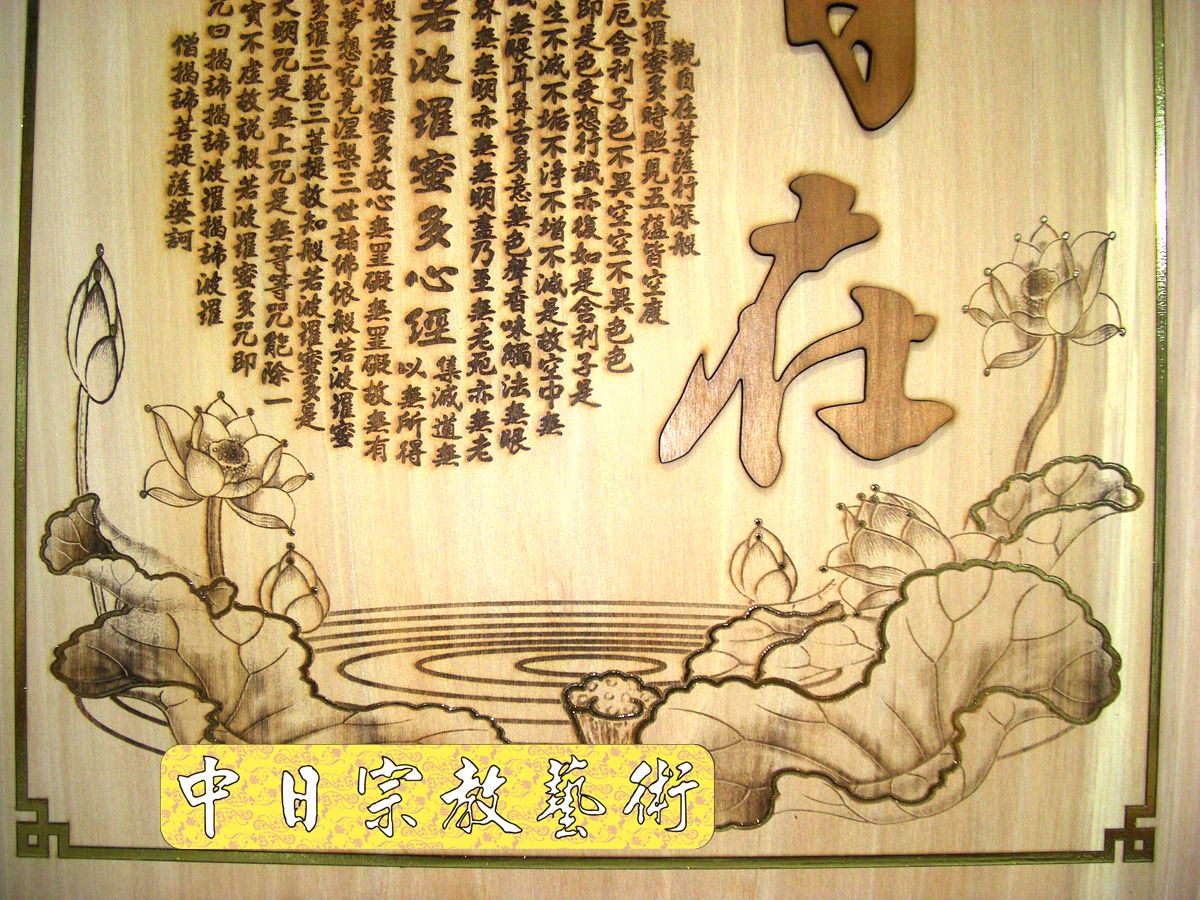 在
觀自在菩薩行深般
波羅蜜多時照見五蘊皆空度
厄舍利子色不異空空不異色色
即是色受想行識亦復如是舍利子是
生不滅不垢不淨不增不減是故空中無
無眼耳鼻舌身意無色聲香味觸法無眼
界無無明亦無無明盡乃至無老死亦無老
集滅道無
若波羅蜜多心經
以無所得
般若波羅蜜多故心無罣礙無罣礙故無有
夢想究竟涅槃三世諸佛依般若波羅蜜
多羅三藐三菩提故知般若波羅蜜多是
大明咒是無上咒是無等等咒能除一
實不虛故說般若波羅蜜多咒即
咒曰揭諦揭諦波羅揭諦波羅
僧揭諦菩提薩婆訶
中日宗教藝術